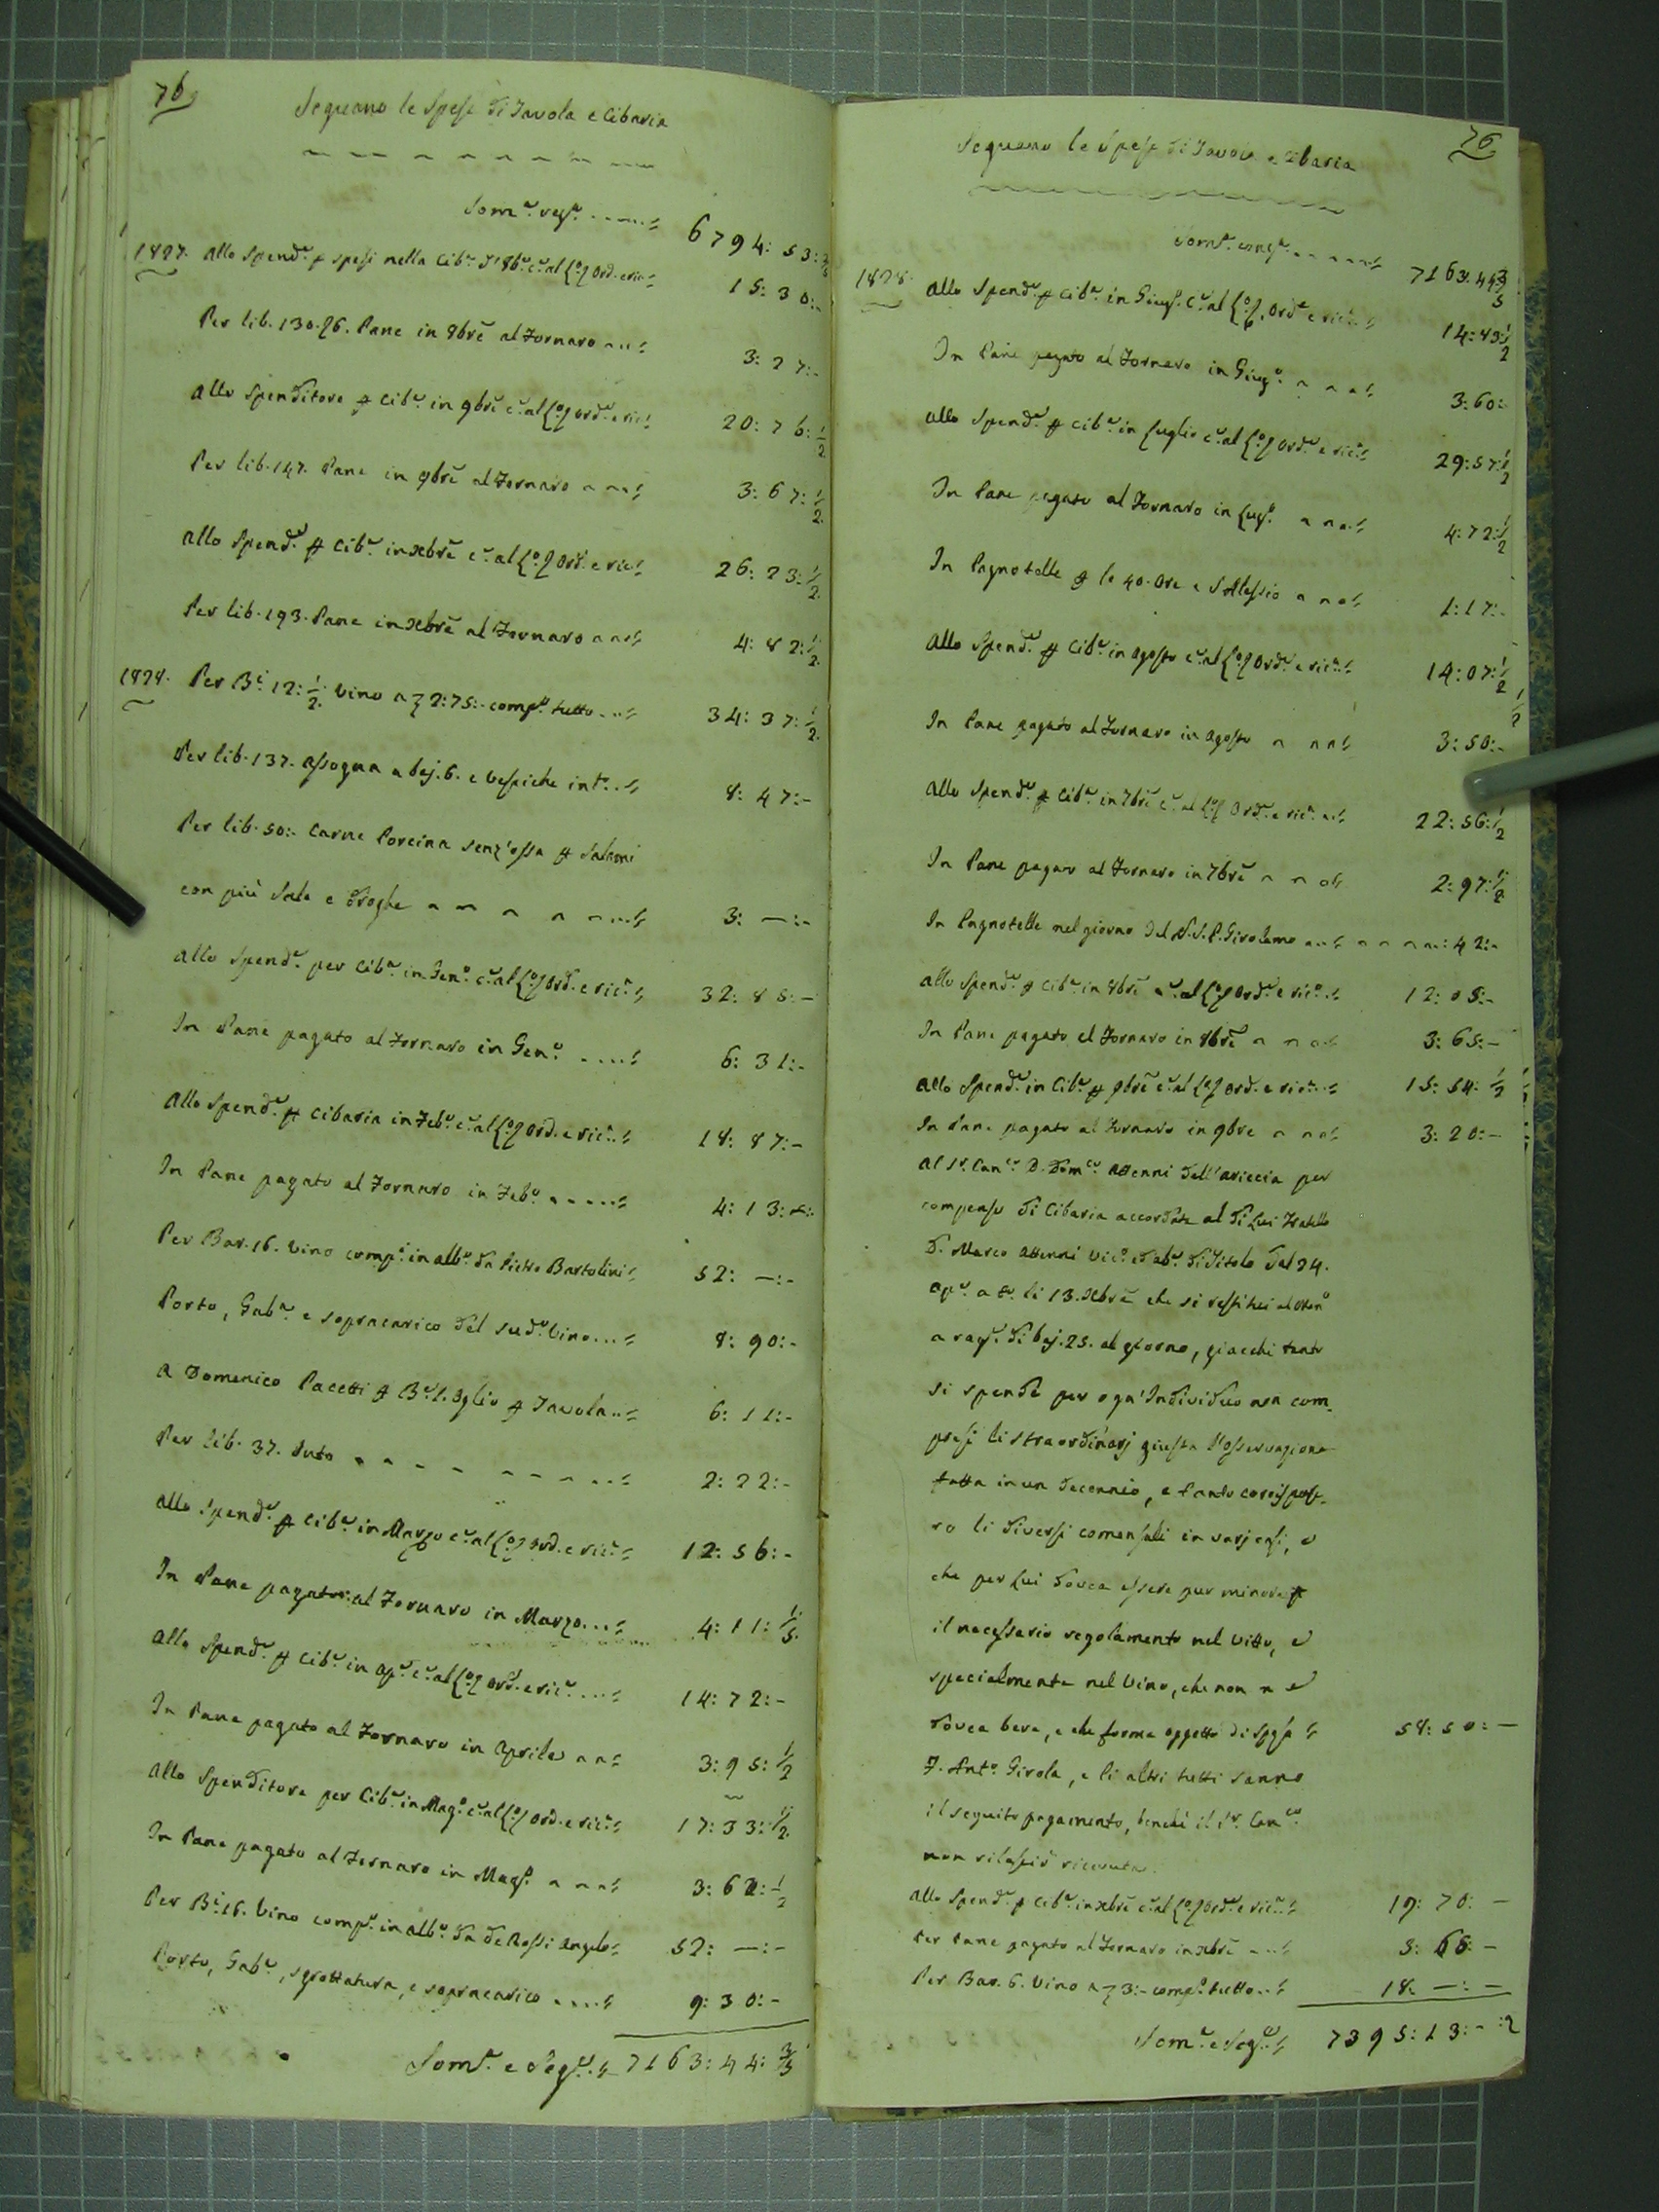 76
Sieguono le Spese di Tavola e Cibaria
Som.a seg.e 6794: 53: 3/5
1827. Allo Spend.e p spesi nella Cib.a d'8b.e c.e al Ord. e ric. 15: 30:-
Per lib. 130. Pane in 8bre al Fornaro 3: 27:-
Allo Spenditore p Cib.a in 9bre c.e al ord. e ric. 20: 76: 1/2
Per lib. 147. Pane in 9bre al Fornaro 3: 67: 1/2
Allo Spend.e p Cib.a in Xbre c.e al Ord. e ric. 26: 23: 1/2
Per lib. 193. Pane in Xbre al Fornaro 4: 82: 1/2
1828. Per B.i 12: 1/2 Vino a 2:75:- comp.o tutto 34: 37: 1/2
Per lib. 137. Assogna a baj. 6. e Vessiche int.e 8: 47:-
Per lib. 50:- Carne Porcina senz'ossa p Salami
con più Sale e Droghe 3: —:-
Allo Spend.e per Cib.a in Gen.o c.e al Ord. e ric.a 32: 85:-
In Pane pagato al Fornaro in Gen.o 6: 31:-
Allo Spend.e p Cibaria in Feb.o c.e al Ord. e ric.a 18: 87:-
In Pane pagato al Fornaro in Feb.o 4: 13:-
Per Bar. 16. Vino comp.o in alb.o da Pietro Bartolini 52: —:-
Porto, Gab.a e sopracarico del sud.o Vino 8: 90:-
A Domenico Pacetti p B.e 1. Oglio p Tavola 6: 11:-
Per lib. 37. 2: 22:-
Allo Spend.e p Cib.a in Marzo c.e al ord. e ric.a 12: 56:-
In Pane pagato al Fornaro in Marzo 4: 11: 1/5
Allo Spend.e p Cib.a in Ap.e c.e al Ord. e ric.a 14: 72:-
In Pane pagato al Fornaro in Aprile 3: 95: 1/2
Allo Spenditore per Cib.a in Mag.o c.e al Ord. e ric.a 17: 33: 1/2
In Pane pagato al Fornaro in Mag.o 3: 62: 1/2
Per B.i 16. Vino comp.o in alb.o da De Rossi Angelo 52: —:-
Porto, Gab.a, sgrottatura, e sopracarico 9: 30:-
Som.a e Seg.e 7163: 44: 3/5
76
Sieguono le Spese di Tavola e Cibaria
Som.a 7163: 44 3/5
1828. Allo Spend.e p Cib.a in Giug.o c.e al Ord.e e ric.a 14: 1/2
In Pane pagato al Fornaro in Giug.o 3: 60:
Allo Spend.e p Cib.a in Luglio c.e al Ord.e e ric.a 29: 57: 1/2
In Pane pagato al Fornaro in Lug.o 4: 72: 1/2
In Pagnotelle p le 40. Ore e S. Alessio 1: 17:-
Allo Spend.e p Cib.a in Agosto c.e al Ord.e e ric.a 14: 07: 1/2
In Pane pagato al Fornaro in Agosto 3: 50:-
Allo Spend.e p Cib.a in 7bre c.e al Ord. e ric.a 22: 56: 1/2
In Pane pagato al Fornaro in 7bre 2: 97: 1/2
In Pagnotelle nel giorno del N. S. P. Girolamo : 42:-
Allo Spend.e p Cib.a in 8bre c.e al Ord.e e ric.a 12: 05:-
In Pane pagato al Fornaro in 8bre 3: 65:-
Allo Spend.e in Cib.a p 9bre c.e al Ord. e ric.a 15: 54: 1/2
In Pane pagato al Fornaro in 9bre 3: 20:-
Al Sr. Can.co D. Dom.co Attenni dell'Ariccia per
compenso di Cibaria accordata al di Lui Fratello
D. Marco Attenni di Titolo dal 24.
Ap.e a t.o li 13. Xbre che si restituì
a rag.e di baj. 25. al giorno, giacchè tanto
si spende per ogn'Individuo non com-
presi li straordinarj giusta l'osservazione
fatta in un decennio, e tanto corrispose-
ro li diversi comensali in varj casi, e
che per Lui dovea essere pur minore p
il necessario regolamento nel vitto, e
specialmente nel Vino, che non ne
dovea bere, e che forma oggetto di Spesa 58: 50:-
F. Ant.o Girola, e li altri tutti sanno
il seguito pagamento, benchè il Sr. Can.co
non rilasciò ricevuta.
Allo Spend.e p Cib.a in Xbre c.e al Ord.e e ric.a 19: 70:-
Per Pane pagato al Fornaro in Xbre 5: 66:-
Per Bar. 6. Vino a 3:- comp.o tutto 18: —:-
Som.a e Seg.e 7395: 13:-